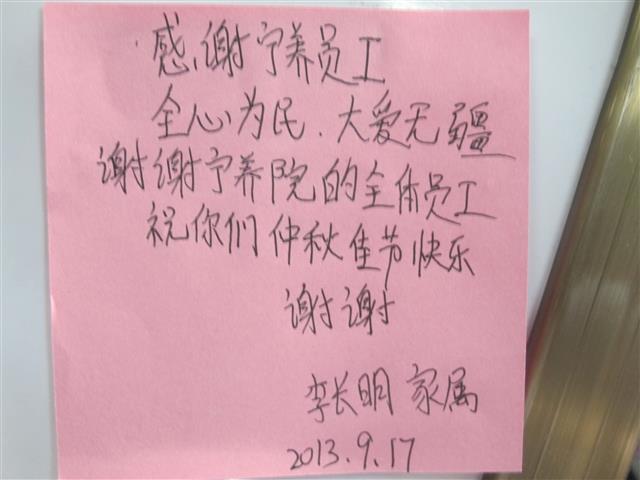 感谢宁养员工
全心为民、大爱无疆
谢谢宁养院的全体员工
祝你们仲秋佳节快乐
谢谢
李长明 家属
2013.9.17